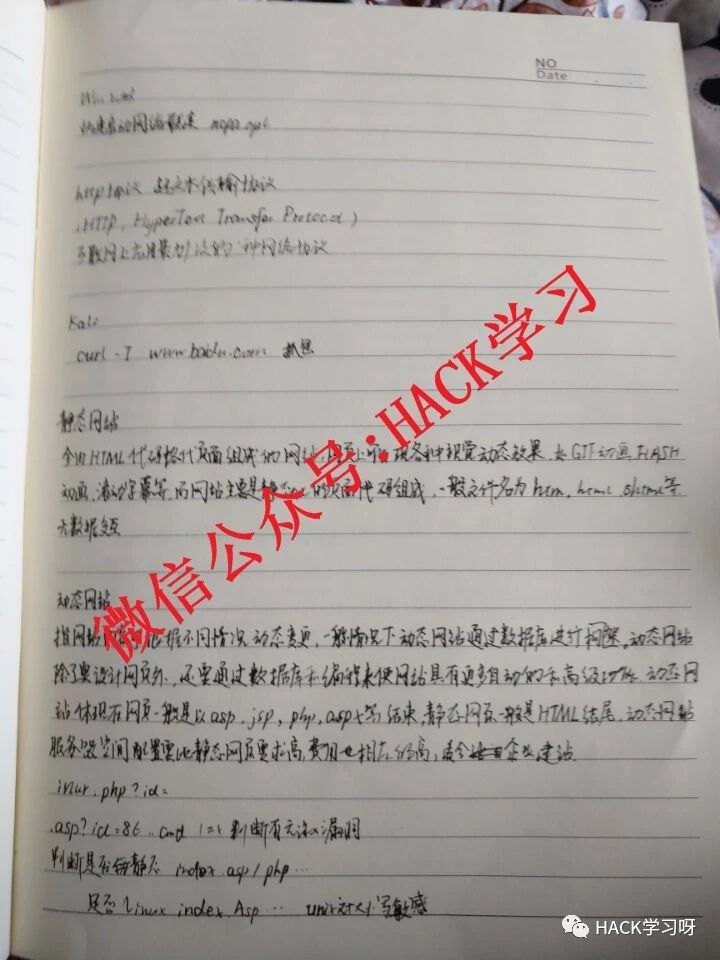 NO
Date
http协议 超文本传输协议
(HTTP, HyperText Transfer Protocol)
互联网上应用最广泛的一种网络协议
Kali
curl -I www.baidu.com 抓包
静态网站
全由HTML代码格式页面组成的网站,网页上 各种视觉动态效果,如GIF动画,FLASH
动画,滚动字幕等,而网站主要是静态 的页面代码组成,一般文件名为htm, html, shtml等
无数据交互
动态网站
指网站内容 根据不同情况动态变更,一般情况下动态网站通过数据库进行 ,动态网站
除了要设计网页外,还要通过数据库和编程来使网站具有更多自动的和高级功能,动态网
站体现在网页一般是以asp, jsp, php, aspx等结束,静态网页一般是HTML结尾,动态网站
服务器空间配置要比静态网页要求高,费用也相应的高, 企业建站
.php?id=
.asp?id=86 1=1 判断有无 漏洞
判断是否 静态 index.asp/php…
是否linux index.Asp… 大小写敏感
微信公众号:HACK学习
HACK学习呀